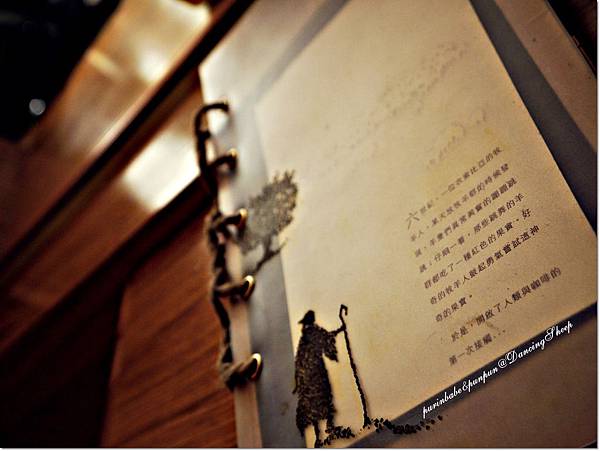 六世紀，一位衣索比亞的牧
羊人，某天放牧羊群的時候發
現，羊兒們異常興奮的蹦蹦跳
跳，仔細一看，那些跳舞的羊
群都吃了一種紅色的果實。好
奇的牧羊人鼓起勇氣嘗試這神
奇的果實。
於是，開啟了人類與咖啡的
第一次接觸...
purinbabe&punpun@DancingSheep